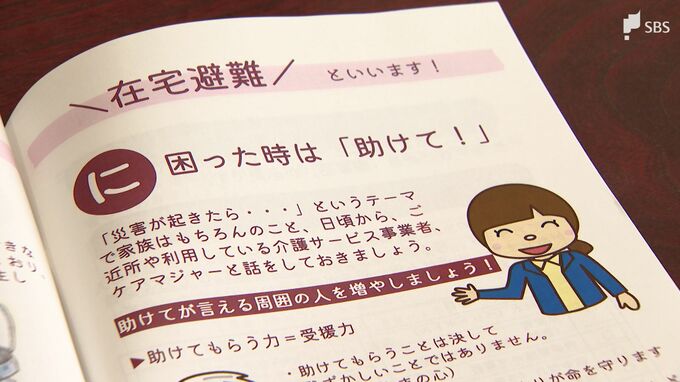 SBS
＼在宅避難／ といいます！
に 困った時は「助けて！」
「災害が起きたら・・・」というテーマ
で家族はもちろんのこと、日頃から、ご
近所や利用している介護サービス事業者、
ケアマジャーと話をしておきましょう。
助けてが言える周囲の人を増やしましょう！
▶助けてもらう力＝受援力
・助けてもらうことは決して
ずかしいことではありません。
の心)
が命を守ります